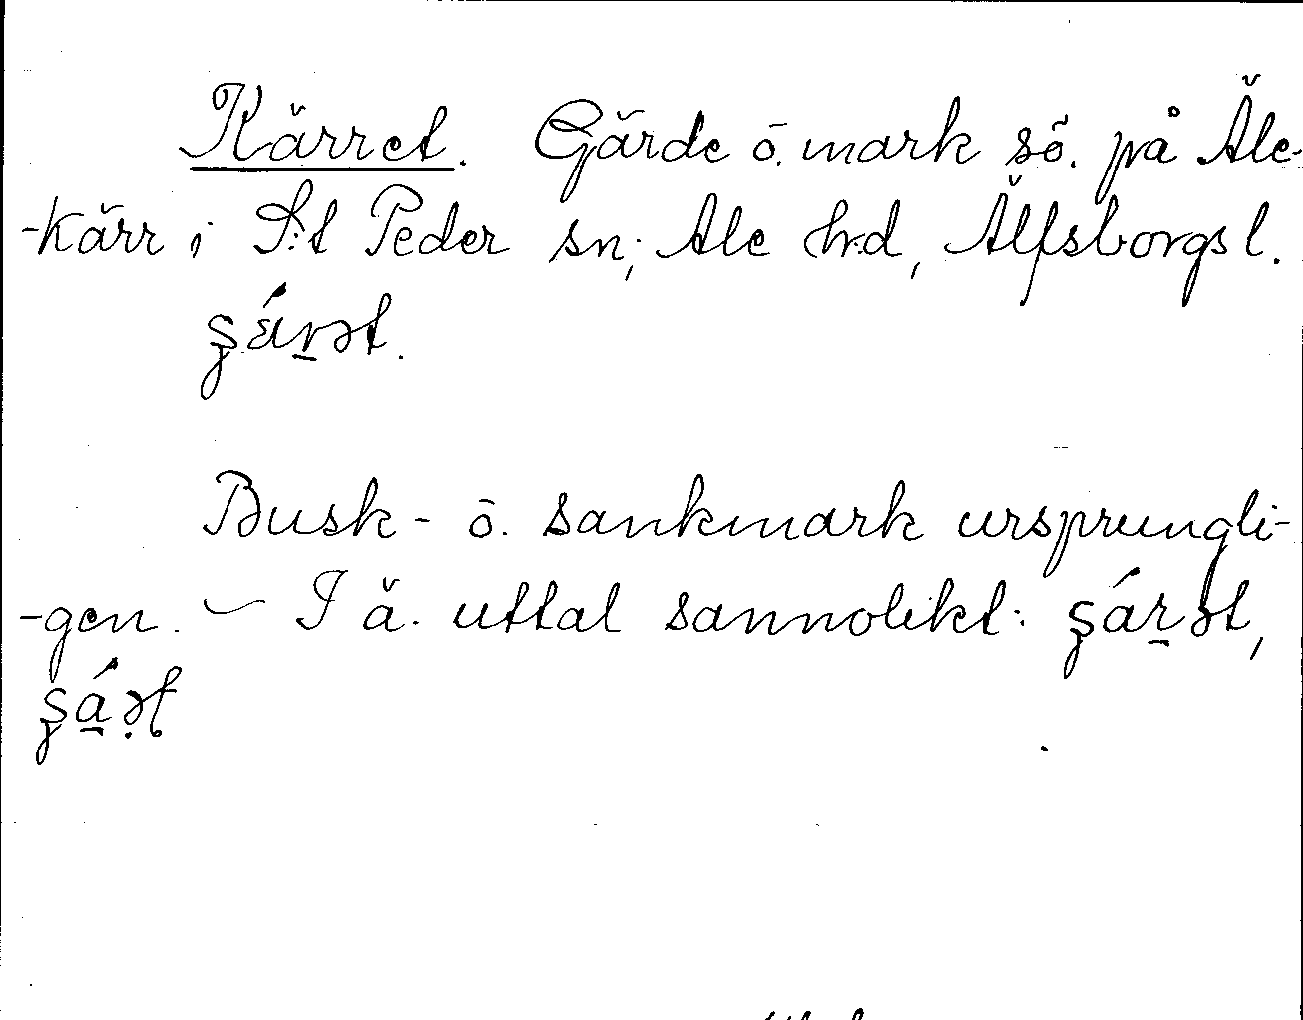 Kärret. Gärde ō. mark sō. på Äle-
-kärr i S:t Peder sn; Ale hrd, Älfsborgs l.
Busk- ō. sankmark ursprungli-
-gen. – I ä. uttal sannolikt: